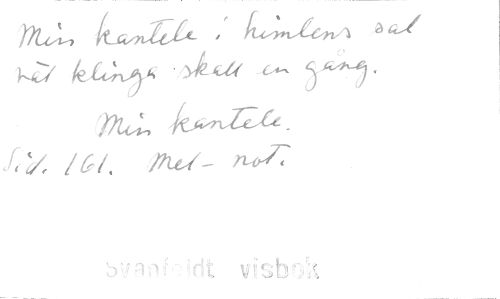 Min kantele i himlens sal
väl klinga skall en gång.
Min kantele.
Sid. 161. Mel-not.
Svanfeldt visbok